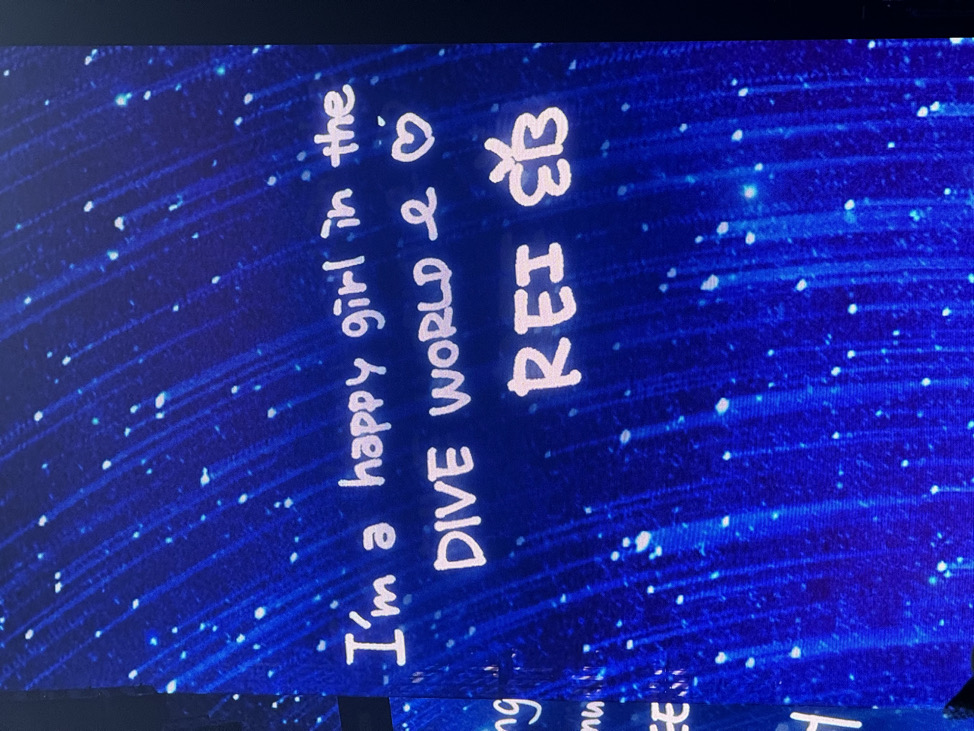 I'm a happy girl in the
DIVE WORLD & ♡
REI